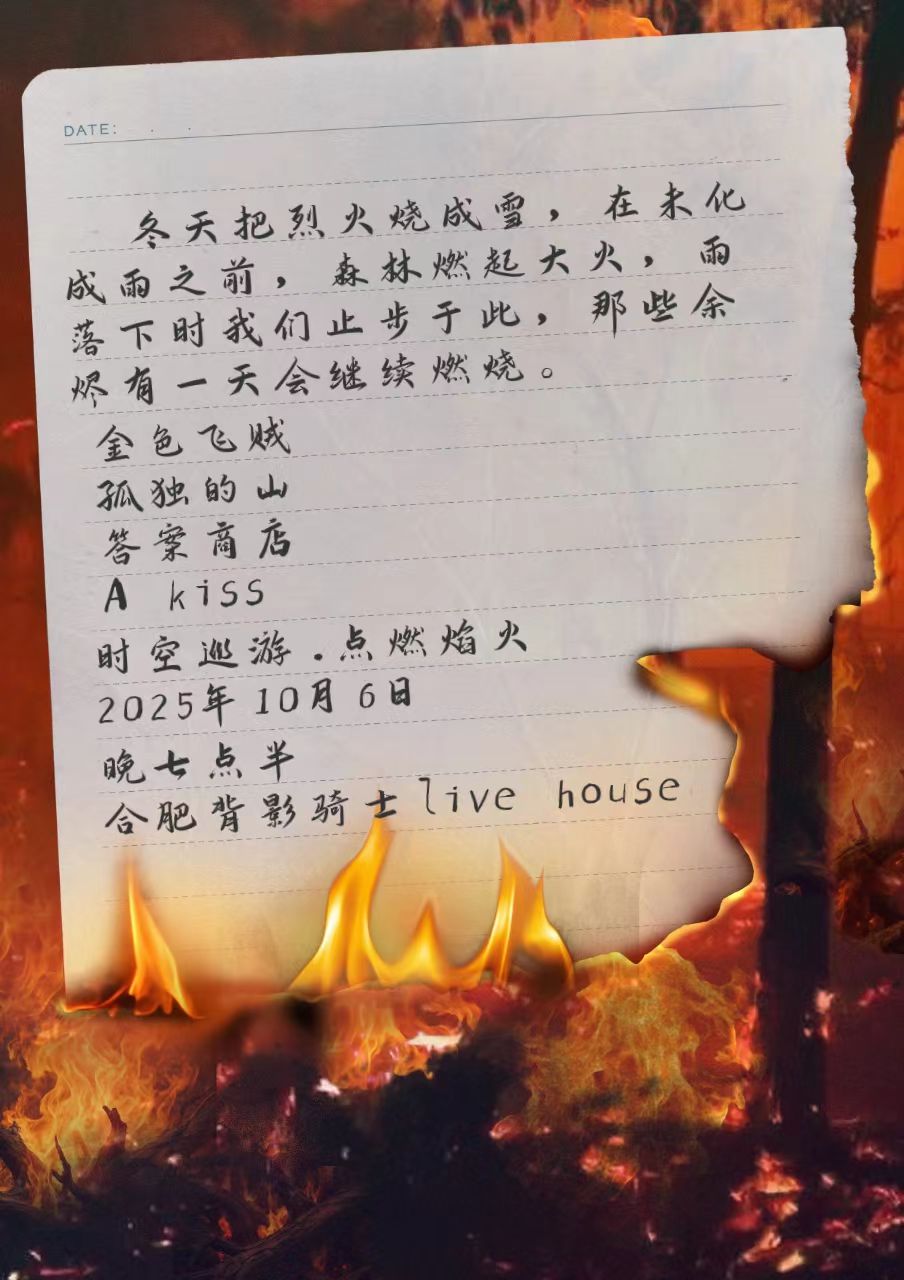 DATE: . .
冬天把烈火烧成雪，在未化
成雨之前，森林燃起大火，雨
落下时我们止步于此，那些余
烬有一天会继续燃烧。
金色飞贼
孤独的山
答案商店
A kiss
时空巡游.点燃焰火
2025年10月6日
晚七点半
合肥背影骑士live house